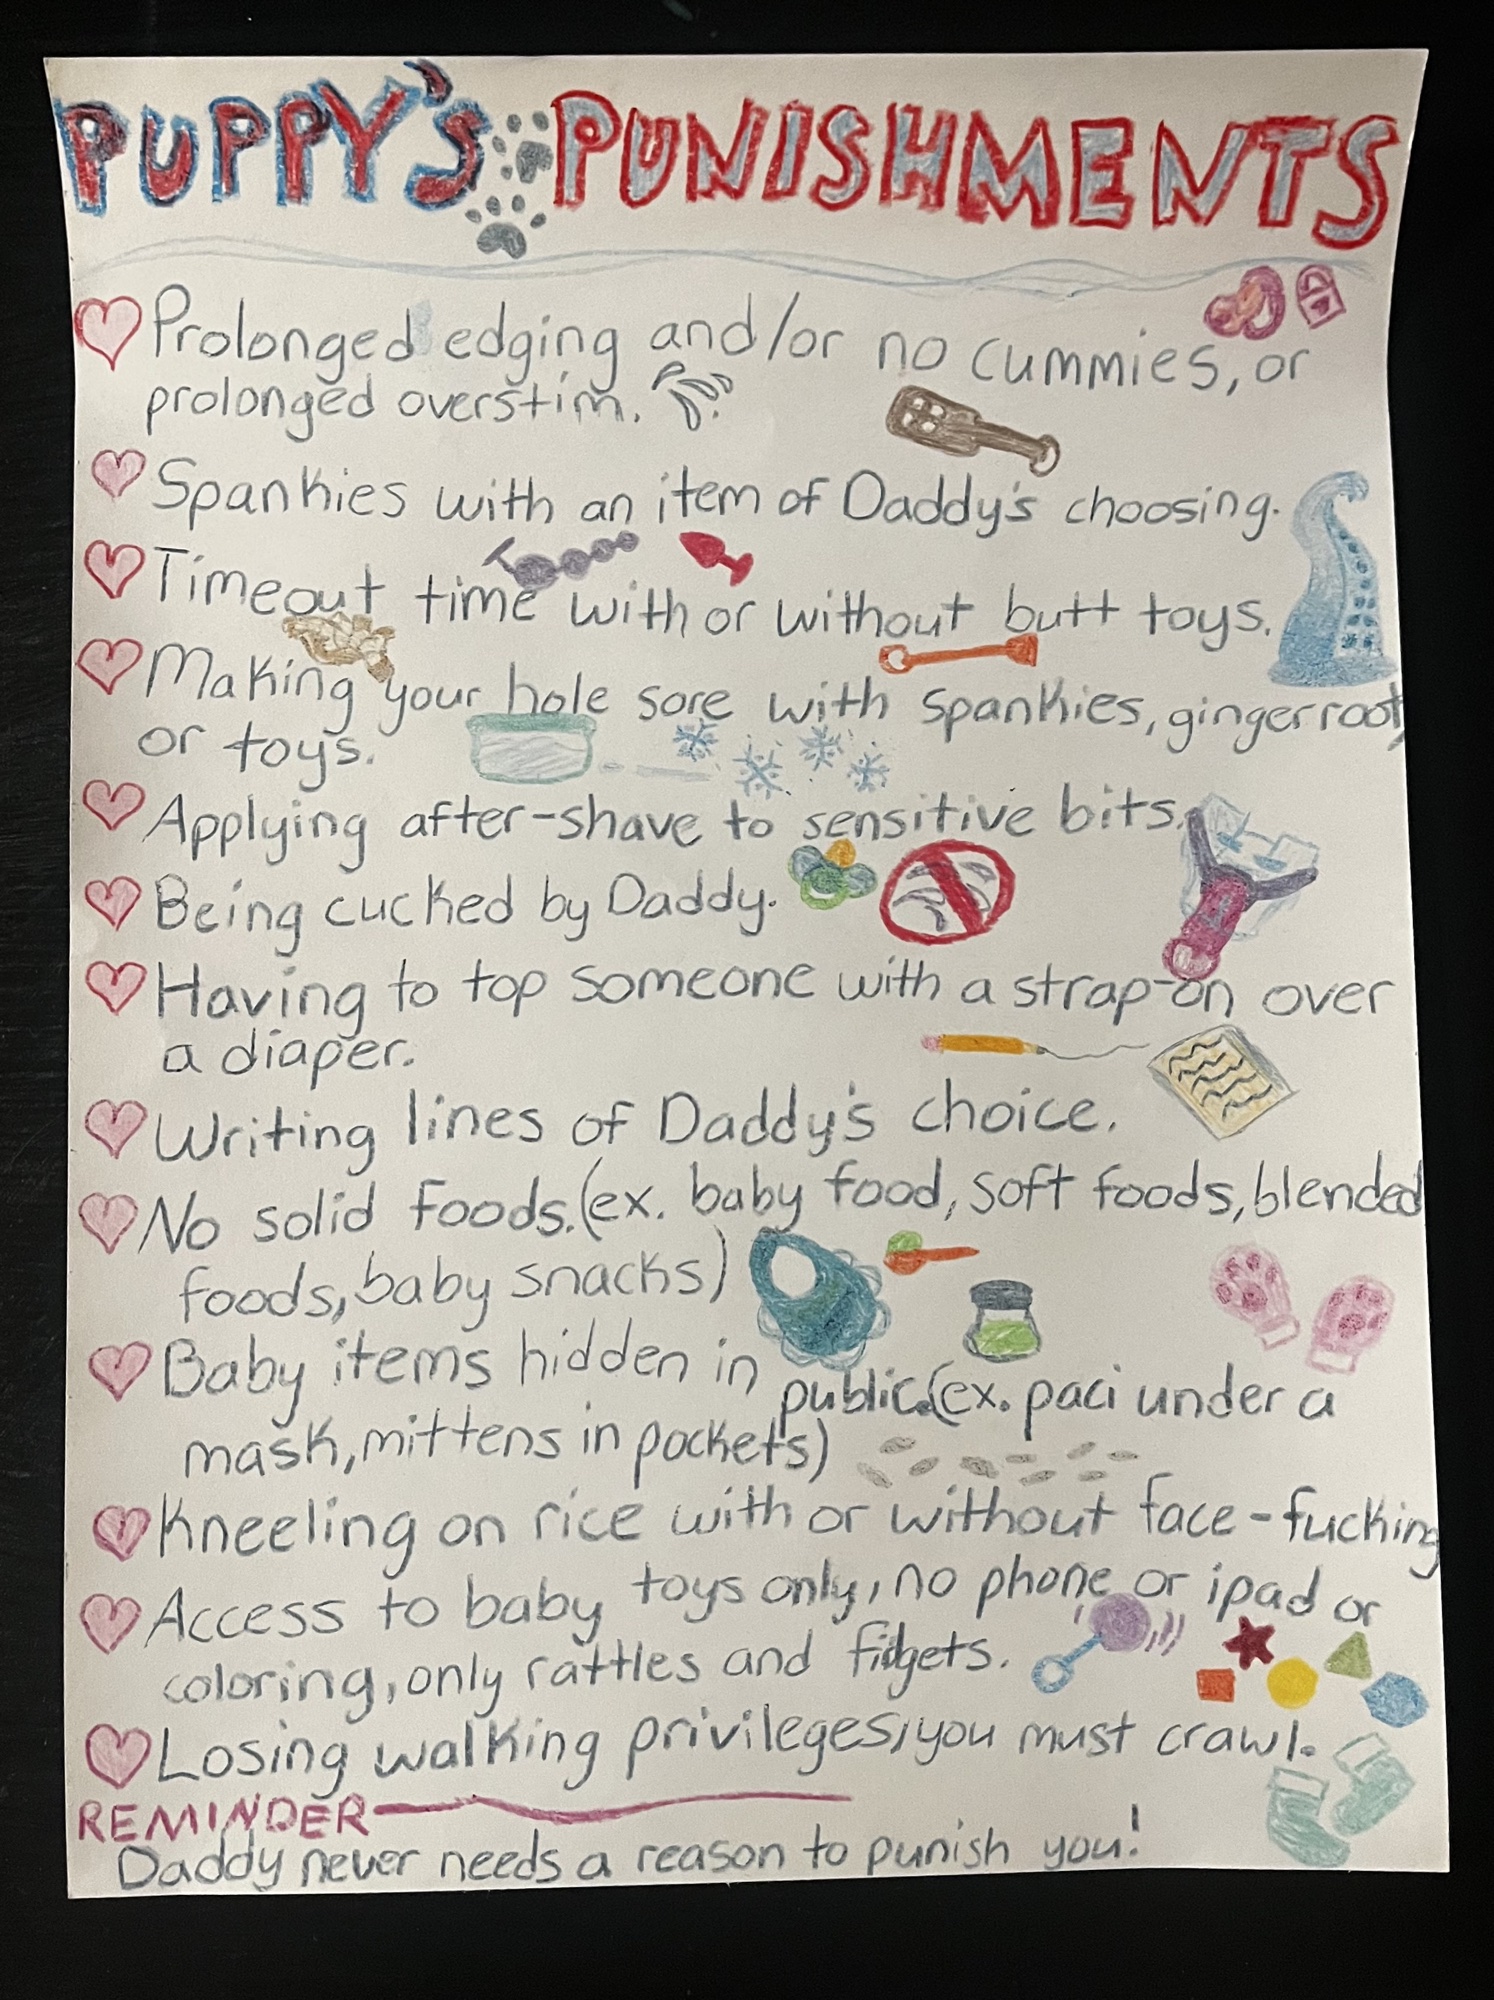 PUPPY'S PUNISHMENTS
Prolonged edging and/or no cummies, or
prolonged overstim.
Spankies with an item of Daddy's choosing.
Timeout time with or without butt toys.
Making your hole sore with spankies, ginger root,
or toys.
Applying after-shave to sensitive bits.
Being cucked by Daddy.
Having to top someone with a strap-on over
a diaper.
Writing lines of Daddy's choice.
No solid foods. (ex. baby food, soft foods, blended
foods, baby snacks)
Baby items hidden in public. (ex. paci under a
mask, mittens in pockets)
Kneeling on rice with or without face-fucking
Access to baby toys only, no phone or ipad or
coloring, only rattles and fidgets.
Losing walking privileges, you must crawl.
REMINDER
Daddy never needs a reason to punish you!